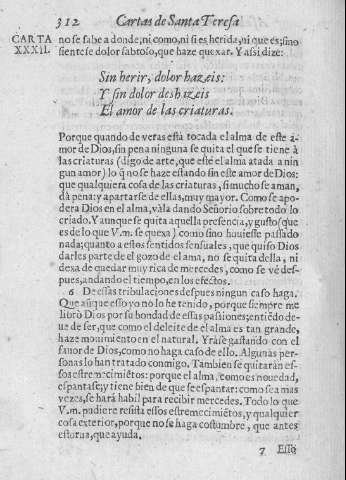 312 Cartas de Santa Teresa
CARTA XXXII.
no se sabe a donde, ni como, ni si es herida, ni que es; sino
sientese dolor sabroso, que haze quexar. Y assi dize:
Sin herir, dolor hazeis:
Y sin dolor deshazeis
El amor de las criaturas.
Porque quando de veras està tocada el alma de este a-
mor de Dios, sin pena ninguna se quita el que se tiene à
las criaturas (digo de arte, que estè el alma atada a nin
gun amor) lo q̃ no se haze estando sin este amor de Dios:
que qualquiera cosa de las criaturas, si mucho se aman,
dà pena: y apartarse de ellas, muy mayor. Como se apo-
dera Dios en el alma, và la dando Señorio sobre todo lo
criado. Y aunque se quita aquella presencia, y gusto (que
es de lo que V.m. se quexa) como sino houiesse passado
nada; quanto a estos sentidos sensuales, que quiso Dios
darles parte de el gozo de el ama, no se quita della, ni
dexa de quedar muy rica de mercedes, como se vè des-
pues, andando el tiempo, en los efectos.
6 De essas tribulaciones despues ningun caso haga.
Que aũque esso yo no lo he tenido, porque siempre me
librò Dios por su bondad de essas passiones; entiẽdo de-
ue de ser, que como el deleite de el alma es tan grande,
haze mouimiento en el natural. Yràse gastando con el
fauor de Dios, como no haga caso de ello. Algunas per-
sonas lo han tratado conmigo. Tambien se quitaràn es-
sos estremecimiẽtos: porque el alma, como es nouedad,
espantase; y tiene bien de que se espantar: como sea mas
vezes, se harà habil para recibir mercedes. Todo lo que
V.m. pudiere resista essos estremecimiẽtos, y qualquier
cosa exterior, porque no se haga costumbre, que antes
estorua, que ayuda.
7 Esso